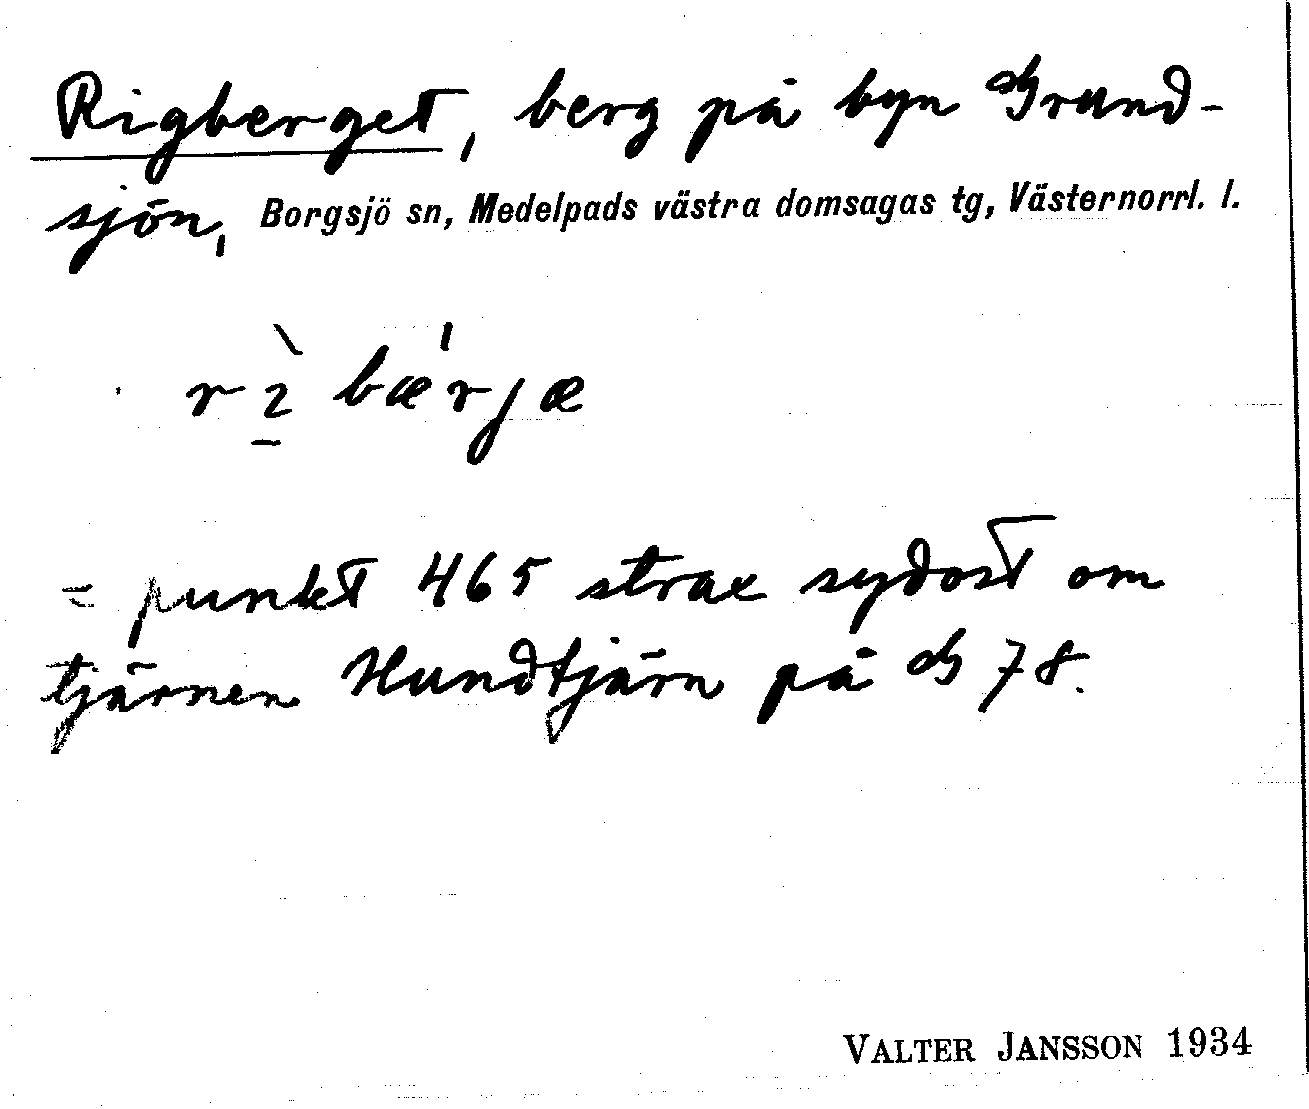 Rigberget, berg på byn Grund-
sjön, Borgsjö sn, Medelpads västra domsagas tg, Västernorrl. l.
rı̱̀ bǽrjæ
= punkt 465 strax sydost om
tjärnen Hundtjärn på G 78.
VALTER JANSSON 1934